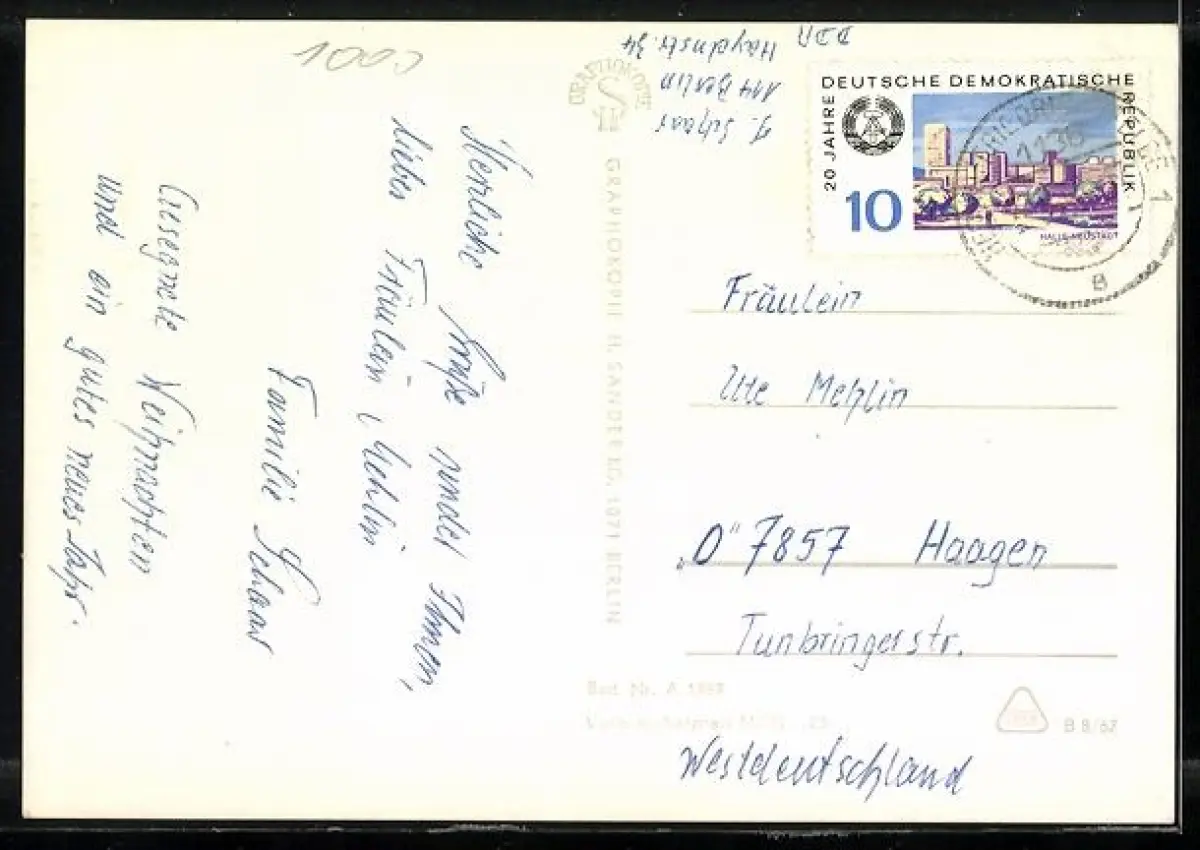 1000
J. Schaar
114 Berlin
Haydnstr. 34
DDR
Herzliche Grüße sendet Ihnen,
liebes Fräulein Mehlin
Familie Schaar
Gesegnete Weihnachten
und ein gutes neues Jahr.
GRAPHOKOPIE H. SANDER KG, 1071 BERLIN
20 JAHRE DEUTSCHE DEMOKRATISCHE REPUBLIK
10
HALLE-NEUSTADT
Fräulein
Ute Mehlin
„D“ 7857 Haagen
Tunbringerstr.
Westdeutschland
B 8/67